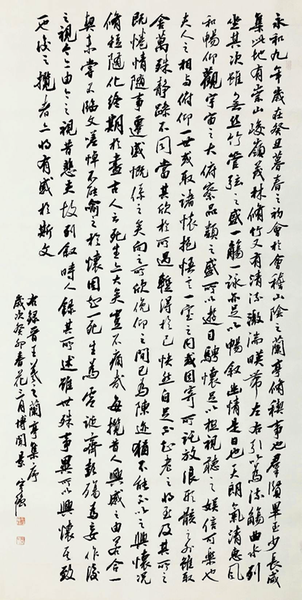 永和九年歲在癸丑暮春之初會於會稽山陰之蘭亭脩禊事也群賢畢至少長咸
集此地有崇山峻嶺茂林脩竹又有清流激湍映帶左右引以為流觴曲水列
坐其次雖無絲竹管弦之盛一觴一詠亦足以暢敘幽情是日也天朗氣清惠風
和暢仰觀宇宙之大俯察品類之盛所以遊目騁懷足以極視聽之娛信可樂也
夫人之相與俯仰一世或取諸懷抱悟言一室之內或因寄所託放浪形骸之外雖取
舍萬殊靜躁不同當其欣於所遇輒得於己快然自足不知老之將至及其所之
既惓情隨事遷感慨係之矣向之所欣俛仰之間已為陳迹猶不能不以之興懷況
脩短隨化終期於盡古人云死生亦大矣豈不痛哉每攬昔人興感之由若合一
契未嘗不臨文嗟悼不能喻之於懷固知一死生為虛誕齊彭殤為妄作後
之視今亦由今之視昔悲夫故列敘時人錄其所述雖世殊事異所以興懷其致
一也後之攬者亦將有感於斯文
右錄晉王羲之蘭亭集序
歲次癸卯春花三月博園景